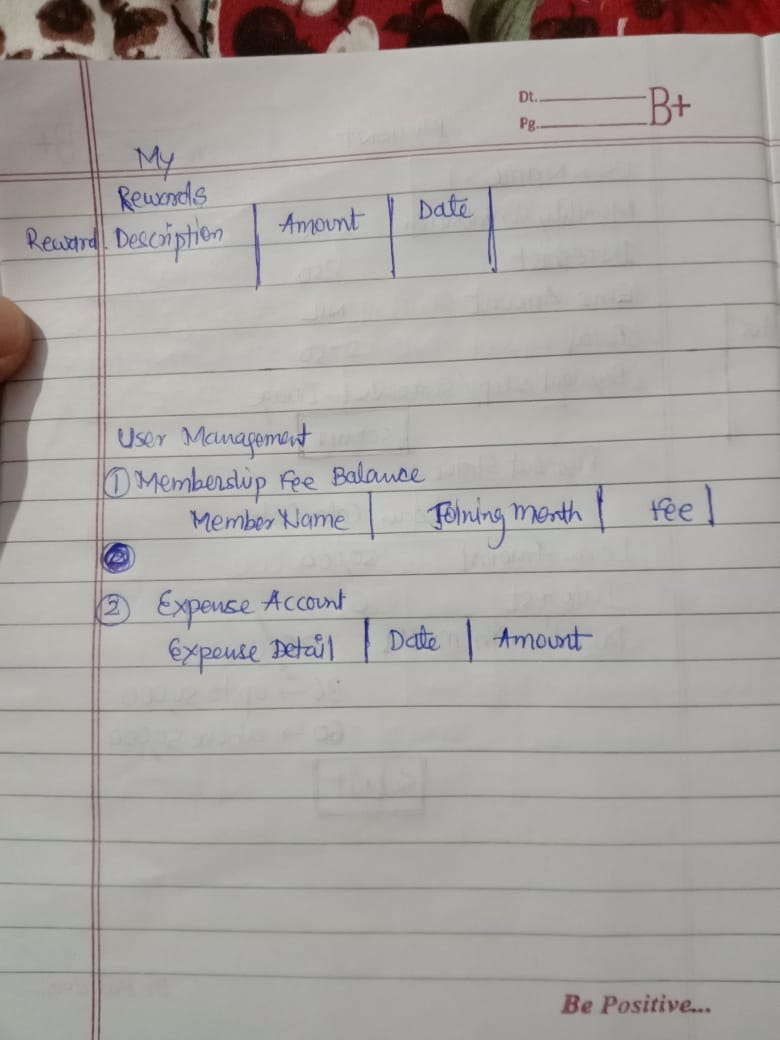 Dt.
Pg.
B+
My
Rewards
Reward Description | Amount | Date |
User Management
① Membership Fee Balance
Member Name | Joining month | Fee |
② Expense Account
Expense Detail | Date | Amount
Be Positive...